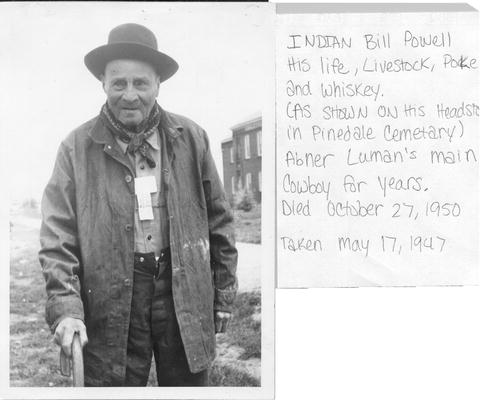 INDIAN Bill Powell
His life, Livestock, Poke
and Whiskey.
(AS SHOWN ON His Headsto
in Pinedale Cemetary)
Abner Luman's main
Cowboy for years.
Died October 27, 1950
Taken May 17, 1947